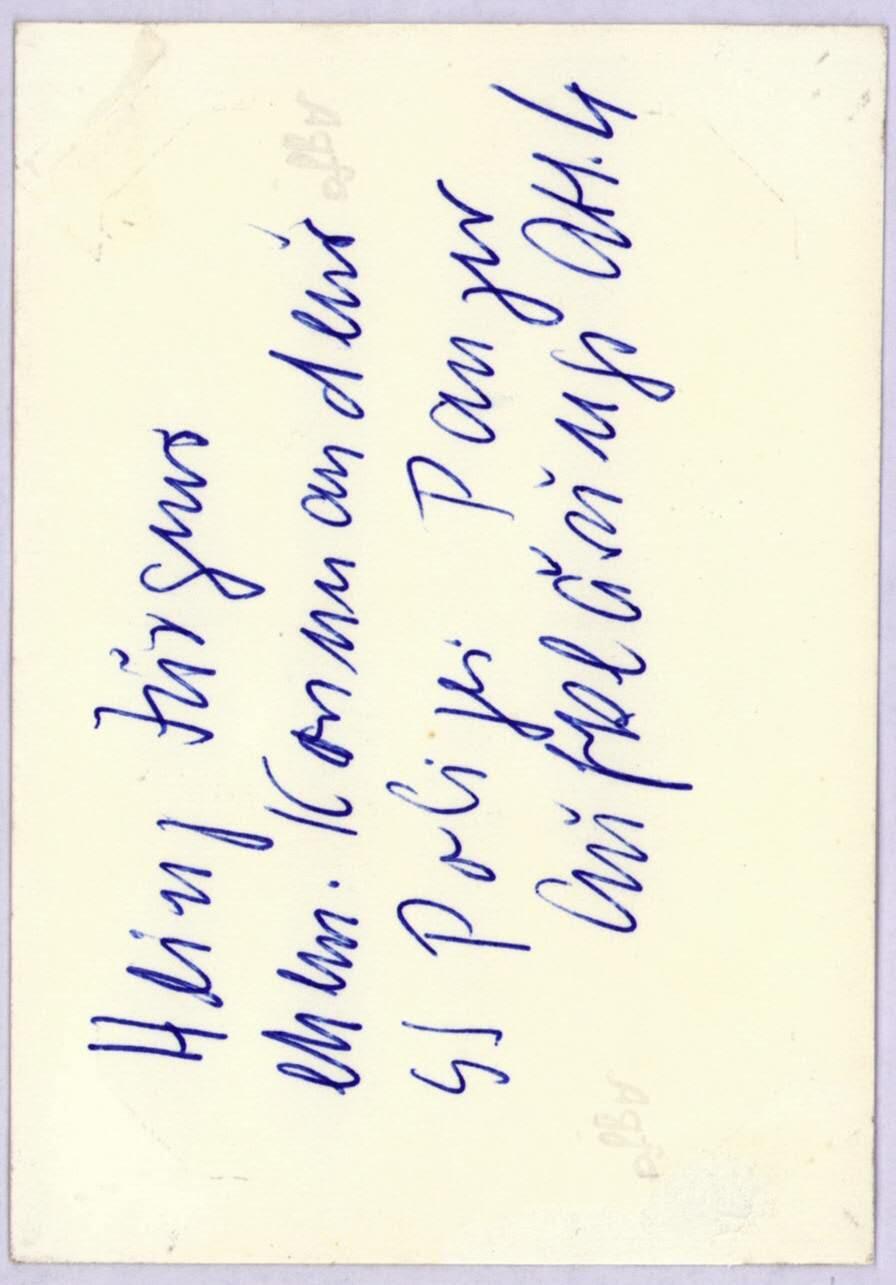 Heinz Jürgens
ehem. Kommandeur
SS Polizei Panzer
Aufklärungs Abt. 4